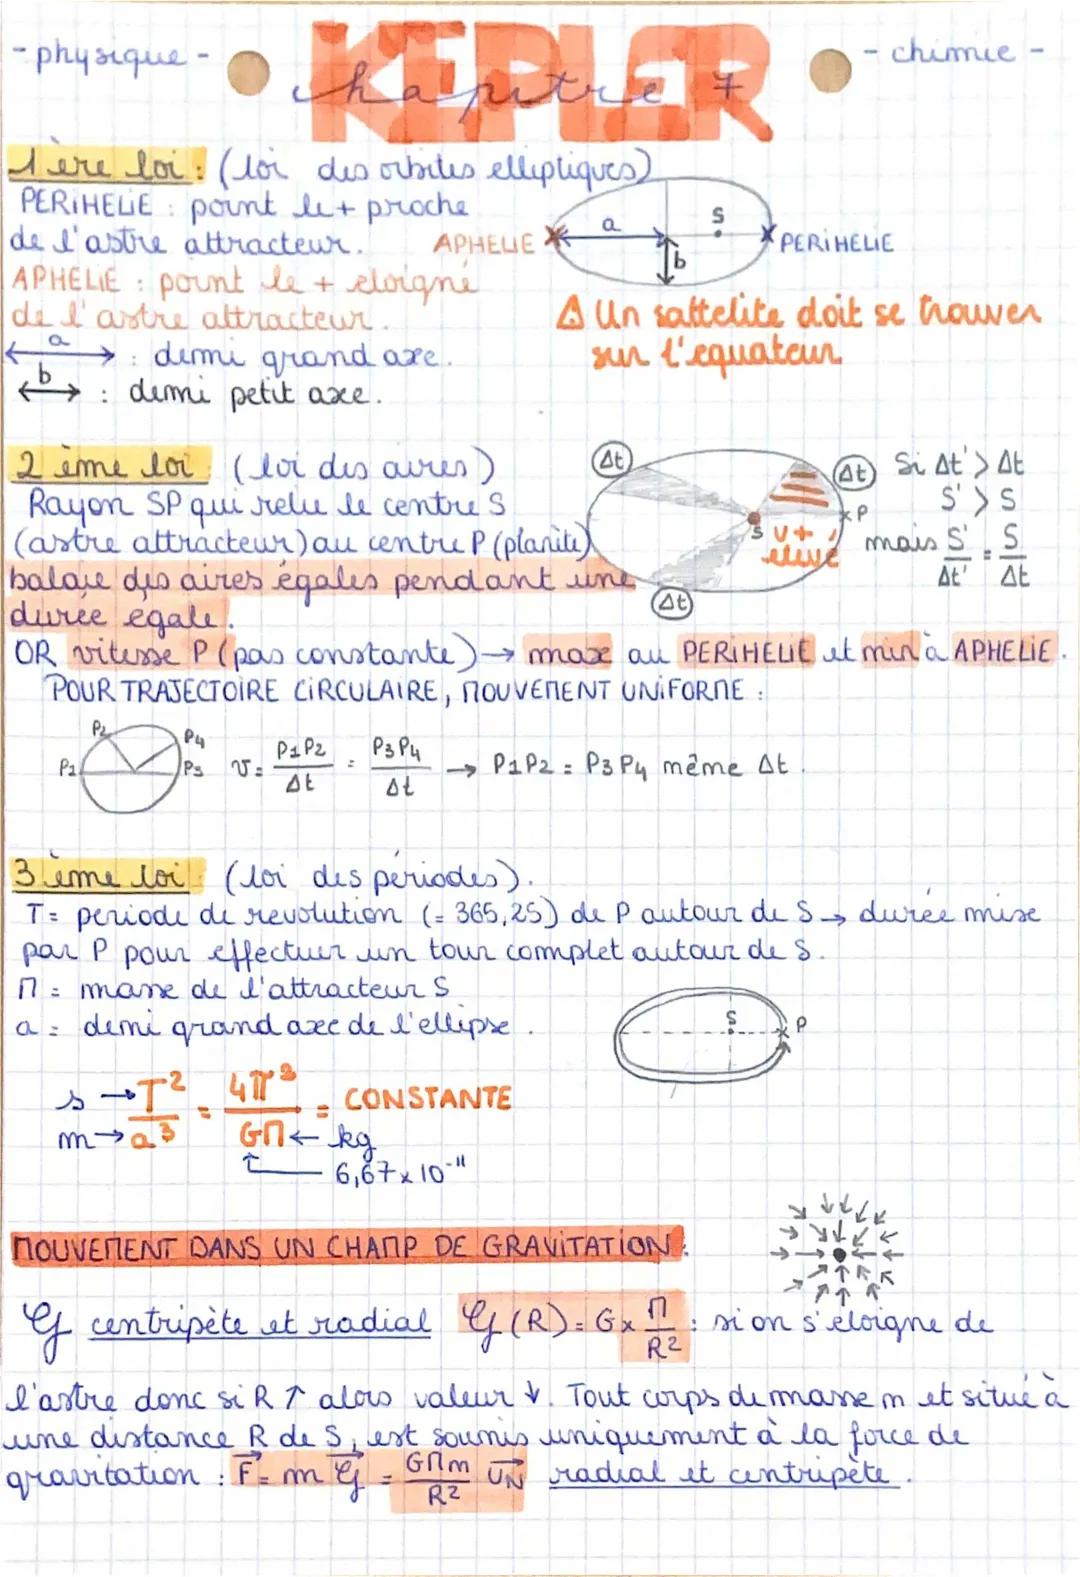 - physique -
KEPLER
- chimie -
chapitre 7
1ère loi : (loi des orbites elliptiques)
PERIHELIE : point le + proche
de l'astre attracteur.
APHELIE : point le + eloigné
de l'astre attracteur.
a : demi grand axe.
b : demi petit axe.
APHELIE a b S PERIHELIE
⚠ Un sattelite doit se trouver
sur l'equateur
2 ème loi (loi des aires)
Rayon SP qui relie le centre S
(astre attracteur) au centre P (planète)
balaie des aires égales pendant une
durée égale.
Δt Δt Δt S P
v + élevé
Si Δt' > Δt
S' > S
mais S'/Δt' = S/Δt
OR vitesse P (pas constante) → max au PERIHELIE et min à APHELIE.
POUR TRAJECTOIRE CIRCULAIRE, MOUVEMENT UNIFORME :
P1 P2 P4 P3
v = P1P2/Δt = P3P4/Δt → P1P2 = P3P4 même Δt.
3 ème loi : (loi des périodes).
T = periode de revolution (= 365,25) de P autour de S → durée mise
par P pour effectuer un tour complet autour de S.
M = masse de l'attracteur S
a = demi grand axe de l'ellipse.
S P
s → T²/a³ ← m = 4π²/GM = CONSTANTE
← kg
6,67 x 10⁻¹¹
MOUVEMENT DANS UN CHAMP DE GRAVITATION :
G centripète et radial G(R) = G x M/R² : si on s'éloigne de
l'astre donc si R ↑ alors valeur ↓. Tout corps de masse m et situé à
une distance R de S, est soumis uniquement à la force de
gravitation : F = m G = GMm/R² UN radial et centripète.